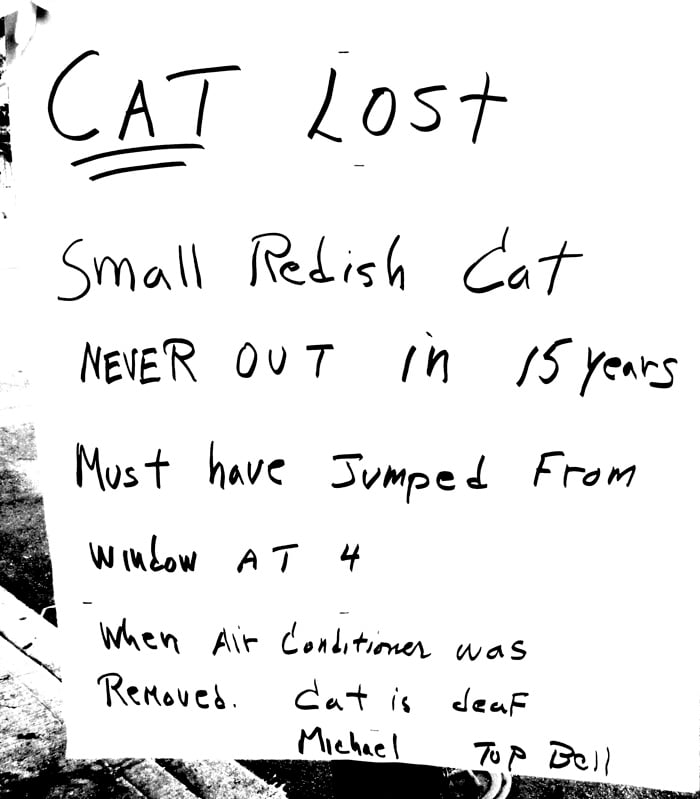 CAT LOST
Small Redish Cat
NEVER OUT in 15 years
Must have Jumped From
Window AT 4
When Air Conditioner was
Removed. Cat is deaf
Michael Top Bell